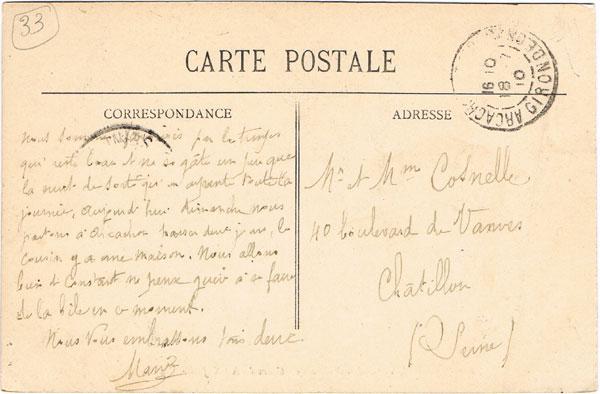 33
CARTE POSTALE
ARCACHON GIRONDE
16 10
18-7
10
CORRESPONDANCE
ADRESSE
Nous sommes favorisés par le temps
qui reste beau et ne se gâte un peu que
la nuit de sorte qu'on arpente toute la
journée, aujourd'hui dimanche nous
partons à Arcachon passer deux jours, le
cousin y a une maison. Nous allons
bien et Constant ne pense guère à se faire
de la bile en ce moment.
Nous vous embrassons tous deux.
Marie
Mr et Mme Cosnelle
40 boulevard de Vanves
Châtillon
(Seine)